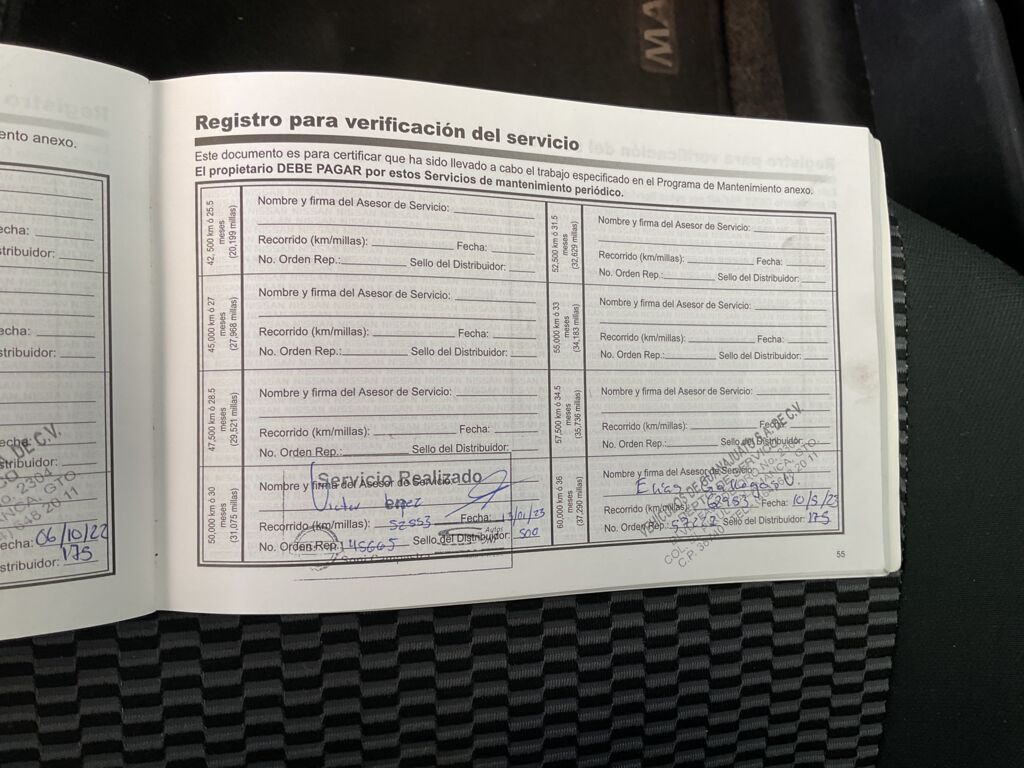 MA
ento anexo.
echa:
stribuidor:
echa:
stribuidor:
echa:
stribuidor:
A. DE C.V.
No. 2304
echa: 06/10/22
stribuidor: 175
Registro para verificación del servicio
Este documento es para certificar que ha sido llevado a cabo el trabajo especificado en el Programa de Mantenimiento anexo.
El propietario DEBE PAGAR por estos Servicios de mantenimiento periódico.
42,500 km ó 25.5
meses
(20,199 millas)
Nombre y firma del Asesor de Servicio:
Recorrido (km/millas): Fecha:
No. Orden Rep.: Sello del Distribuidor:
45,000 km ó 27
meses
(27,968 millas)
Nombre y firma del Asesor de Servicio:
Recorrido (km/millas): Fecha:
No. Orden Rep.: Sello del Distribuidor:
47,500 km ó 28.5
meses
(29,521 millas)
Nombre y firma del Asesor de Servicio:
Recorrido (km/millas): Fecha:
No. Orden Rep.: Sello del Distribuidor:
50,000 km ó 30
meses
(31,075 millas)
Servicio Realizado
Nombre y firma del Asesor de Servicio:
Victor
Recorrido (km/millas): 52553 Fecha: 13/01/23
No. Orden Rep.: 145665 Sello del Distribuidor: 500
52,500 km ó 31.5
meses
(32,629 millas)
Nombre y firma del Asesor de Servicio:
Recorrido (km/millas): Fecha:
No. Orden Rep.: Sello del Distribuidor:
55,000 km ó 33
meses
(34,183 millas)
Nombre y firma del Asesor de Servicio:
Recorrido (km/millas): Fecha:
No. Orden Rep.: Sello del Distribuidor:
57,500 km ó 34.5
meses
(35,736 millas)
Nombre y firma del Asesor de Servicio:
Recorrido (km/millas): Fecha:
No. Orden Rep.: Sello del Distribuidor:
60,000 km ó 36
meses
(37,290 millas)
Nombre y firma del Asesor de Servicio:
Elías
Recorrido (km/millas): Fecha: 10/5/23
No. Orden Rep.: 57222 Sello del Distribuidor: 175
55